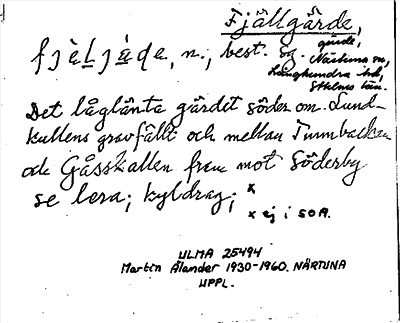 Fjällgärde,
gärde,
fjä̀l̲jà̲ḍe, n., best. sg. Närtuna sn,
Långhundra hd,
Sthlms län.
Det låglänta gärdet söder om Lund-
kullens gravfällt och mellan Tunnbacken
och Gåsskallen fram mot Söderby
se lera; kyldrag; x
x ej i SOA.
ULMA 25494
Martin Ålander 1930-1960. NÄRTUNA
UPPL.